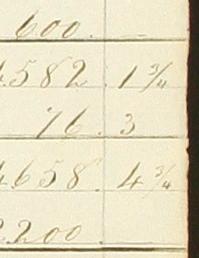 600. —
4582. 1 3/4
76. 3
4658. 4 3/4
2200. —